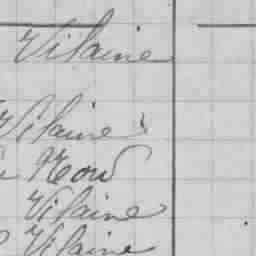 Vilaine
Vilaine
Nord
Vilaine
Vilaine